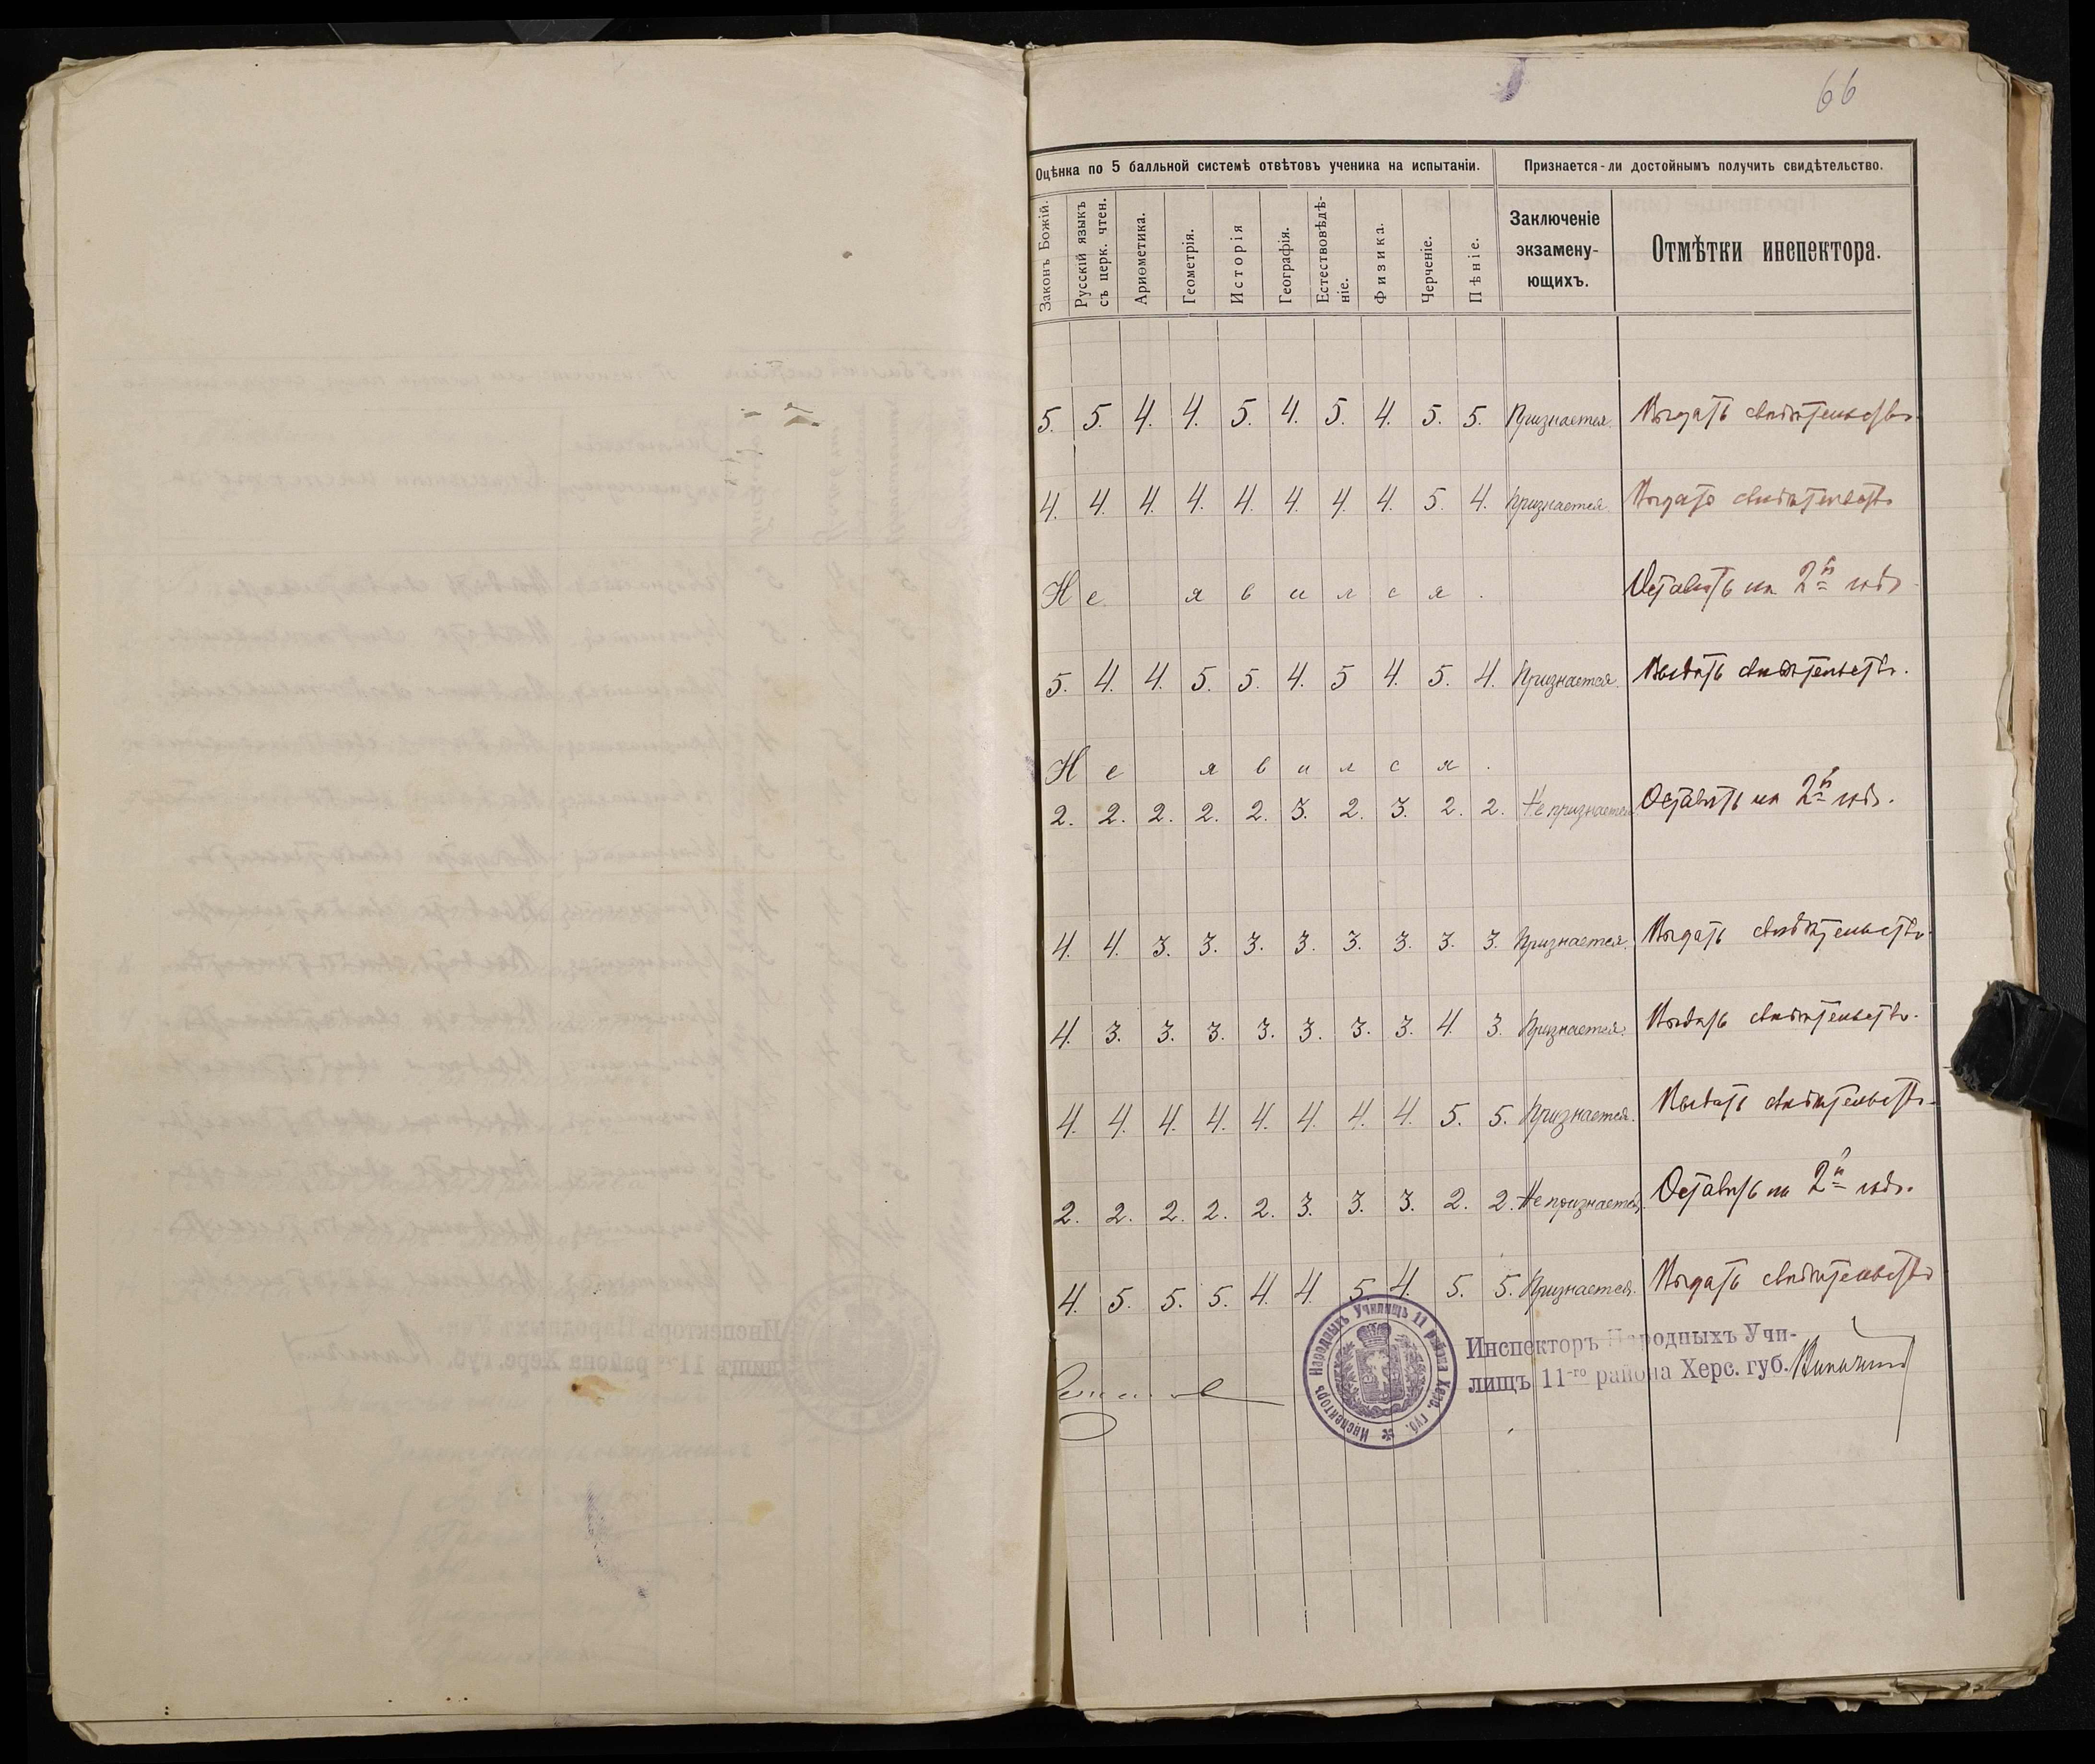 66
Оцѣнка по 5 балльной системѣ отвѣтовъ ученика на испытаніи. Признается-ли достойнымъ получить свидѣтельство.
Законъ Божій. Русскій языкъ съ церк. чтен. Ариѳметика. Геометрія. Исторія Географія. Естествовѣдѣ-ніе. Физика. Черченіе. Пѣніе. Заключеніе экзамену-ющихъ. Отмѣтки инспектора.
5. 5. 4. 4. 5. 4. 5. 4. 5. 5. Признается. Выдать свидѣтельство.
4. 4. 4. 4. 4. 4. 4. 4. 5. 4. Признается. Выдать свидѣтельство
Не явился. Оставить на 2й годъ.
5. 4. 4. 5. 5. 4. 5 4. 5. 4. Признается. Выдать свидѣтельство.
Не явился.
2. 2. 2. 2. 2. 3. 2. 3. 2. 2. Не признается Оставить на 2й годъ.
4. 4. 3. 3. 3. 3. 3. 3. 3. 3. Признается. Выдать свидѣтельство.
4. 3. 3. 3. 3. 3. 3. 3. 4. 3. Признается. Выдать свидѣтельство.
4. 4. 4. 4. 4. 4. 4. 4. 5. 5. Признается. Выдать свидѣтельство.
2. 2. 2. 2. 2. 3. 3. 3. 2. 2. Не признается. Оставить на 2й годъ.
4. 5. 5. 5. 4. 4. 5. 4. 5. 5. Признается. Выдать свидѣтельство
Инспекторъ Народныхъ Училищъ 11 района Херс. губ.
Инспекторъ Народныхъ Учи-
лищъ 11-го района Херс. губ.